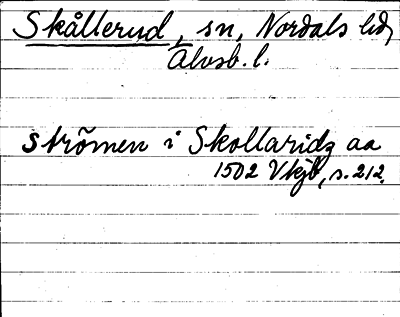 Skållerud, sn, Nordals hd,
Älvsb. l.
strömen i Skollaridz aa
1502 Vkjb, s. 212.